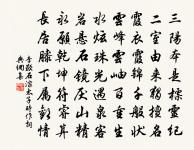 三陽本是標靈紀
二室由來獨擅名
霞衣霞錦千般狀
雲峰雲岫百重生
水炫珠光遇泉客
巖懸石鏡厭山精
永願乾坤符睿算
長居膝下屬歡情
李顯石淙太子時作詞